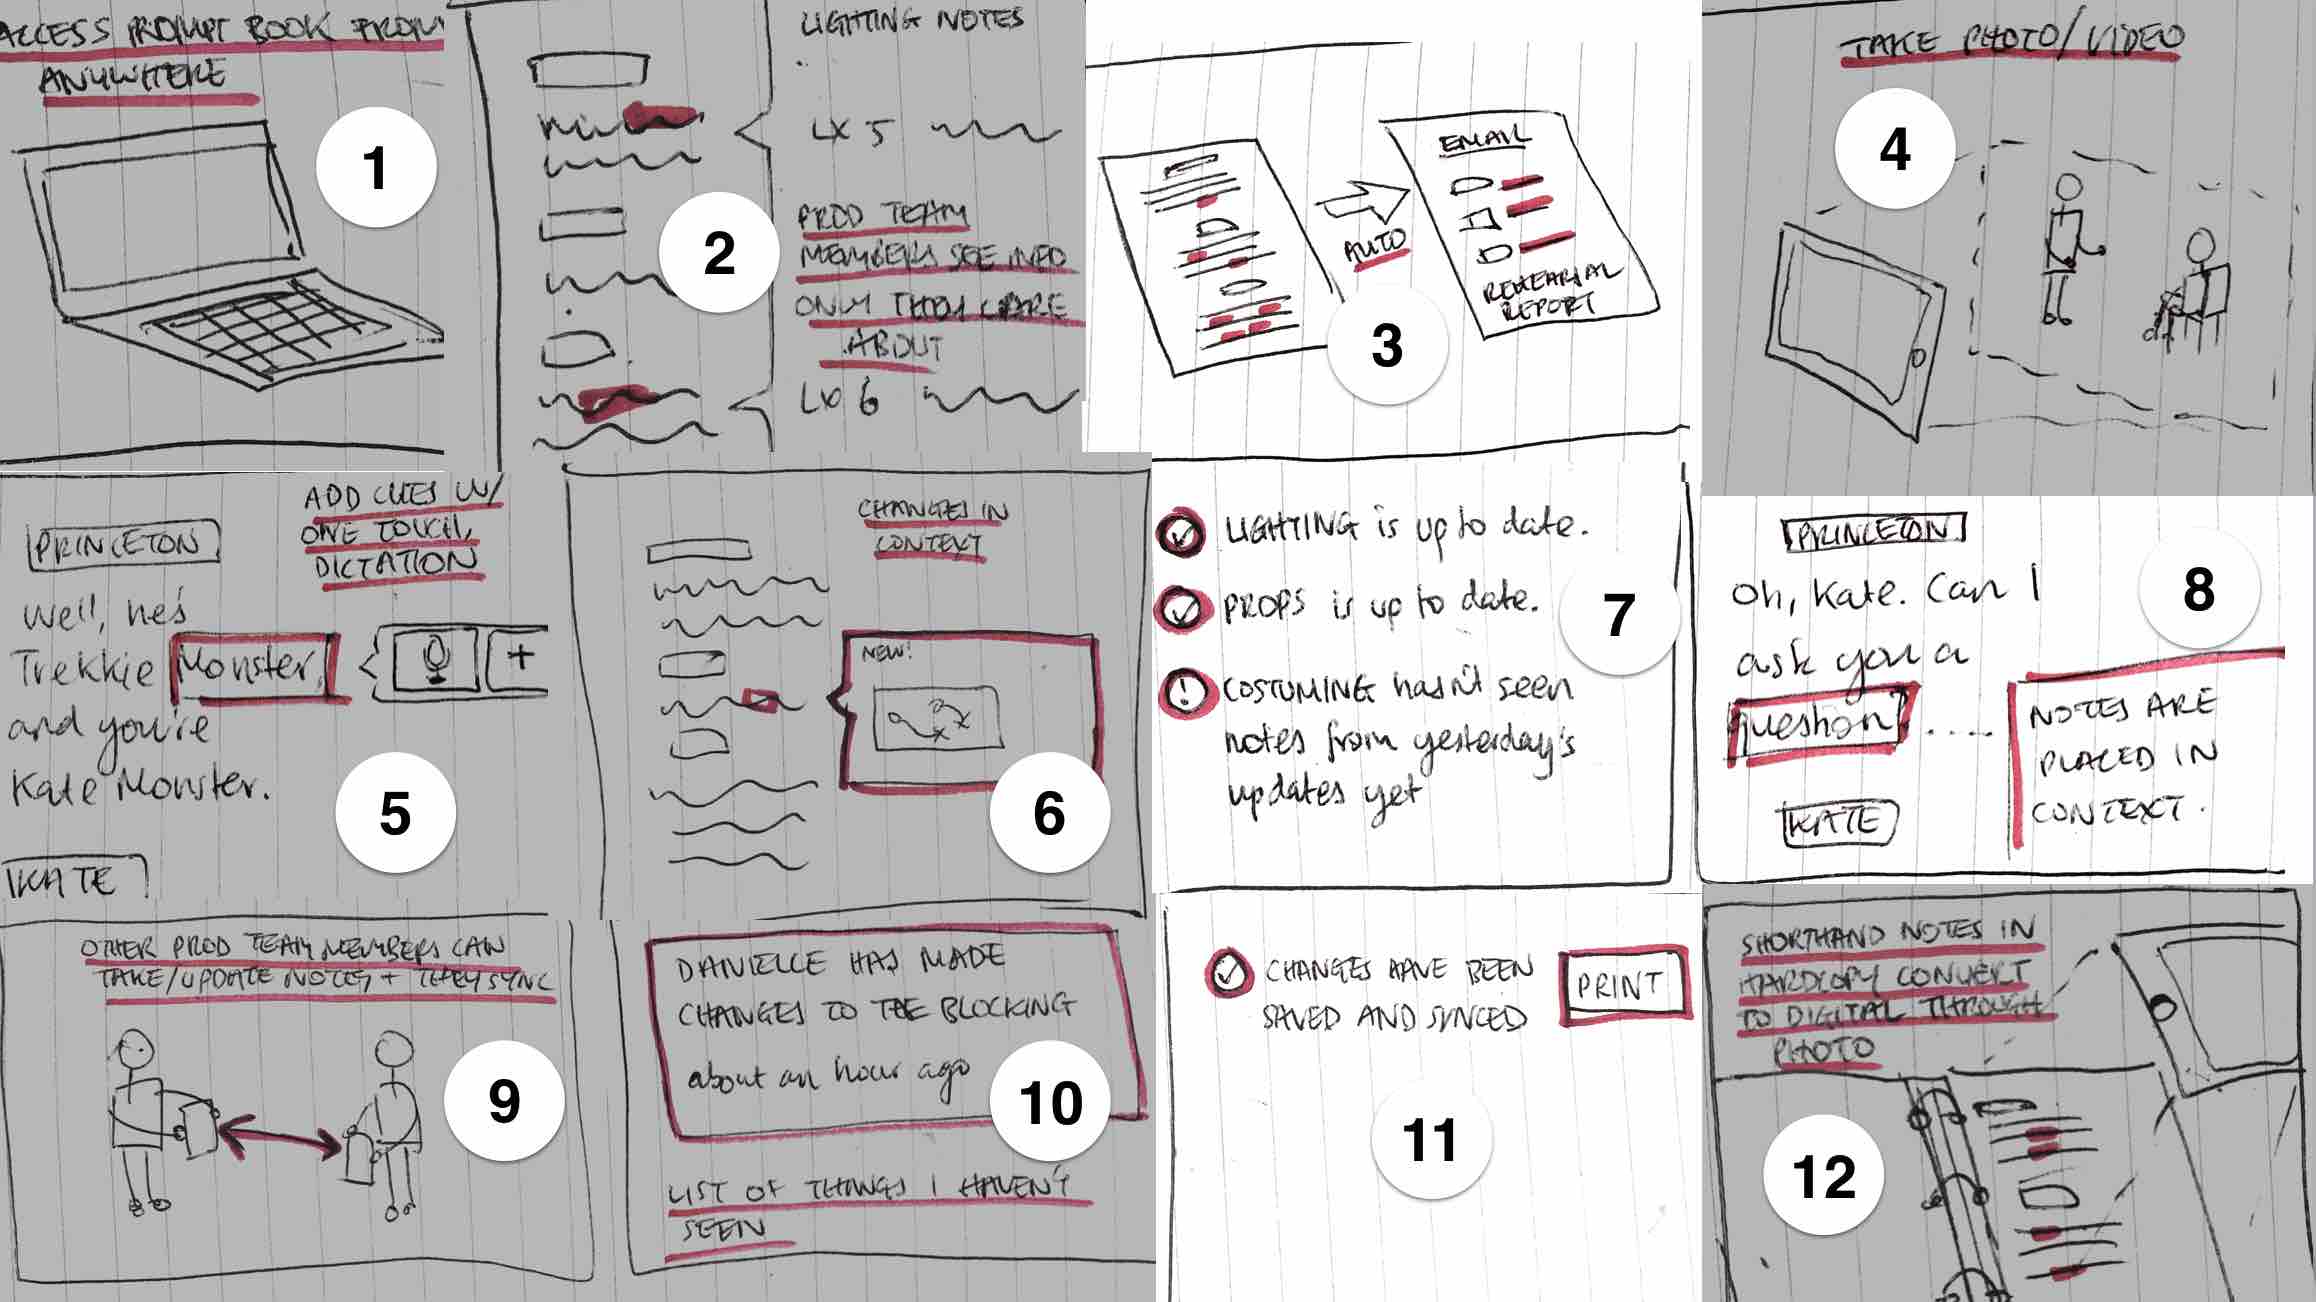 ACCESS PROMPT BOOK FROM
ANYWHERE
1
LIGHTING NOTES
LX 5
PROD TEAM
MEMBERS SEE INFO
ONLY THEY CARE
ABOUT
LX 6
2
EMAIL
AUTO
REHEARSAL
REPORT
3
TAKE PHOTO/VIDEO
4
ADD CUES W/
ONE TOUCH,
DICTATION
PRINCETON
Well, he's
Trekkie Monster,
and you're
Kate Monster.
+
KATE
5
CHANGES IN
CONTEXT
NEW!
6
LIGHTING is up to date.
PROPS is up to date.
! COSTUMING hasn't seen
notes from yesterday's
updates yet
7
PRINCETON
Oh, Kate. Can I
ask you a
question? .....
NOTES ARE
PLACED IN
CONTEXT.
KATE
8
OTHER PROD TEAM MEMBERS CAN
TAKE/UPDATE NOTES + THEY SYNC
9
DANIELLE HAS MADE
CHANGES TO THE BLOCKING
about an hour ago
LIST OF THINGS I HAVEN'T
SEEN
10
CHANGES HAVE BEEN
SAVED AND SYNCED
PRINT
11
SHORTHAND NOTES IN
HARDCOPY CONVERT
TO DIGITAL THROUGH
PHOTO
12